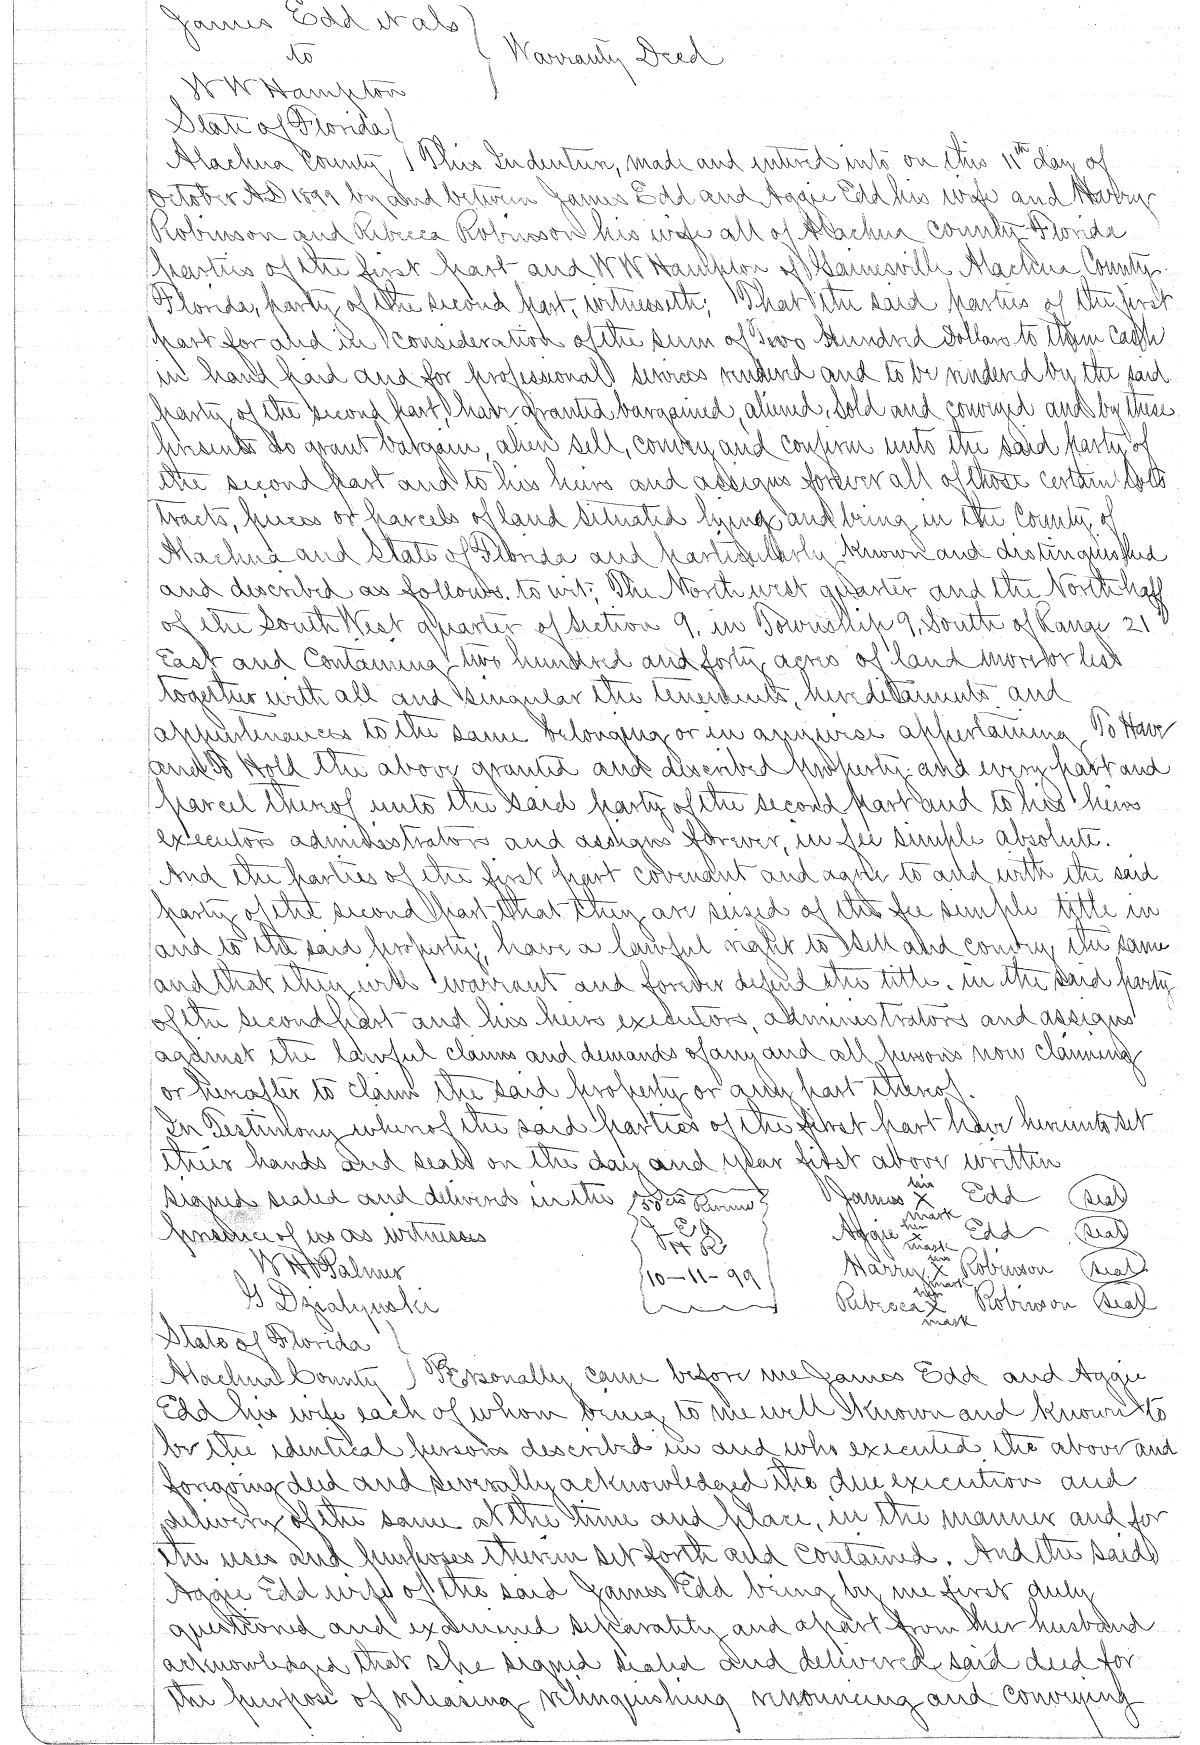 James Edd et als
to
W W Hampton
Warranty Deed
State of Florida
Alachua County This Indenture, made and entered into on this 11th day of
October AD 1899 by and between James Edd and Aggie Edd his wife and Harry
Robinson and Ribecca Robinson his wife all of Alachua County Florida
parties of the first part and W W Hampton of Gainesville Alachua County
Florida, party of the second part, witnesseth; That the said parties of the first
part for and in consideration of the sum of Two Hundred Dollars to them cash
in hand paid and for professional services rendered and to be rendered by the said
party of the second part, have granted bargained, aliened, sold and conveyed and by these
presents do grant bargain, alien sell, convey and confirm unto the said party of
the second part and to his heirs and assigns forever all of those certain lots
tracts, pieces or parcels of land situated lying and being in the County of
Alachua and State of Florida and particularly known and distinguished
and described as follows. to wit; The North west quarter and the North half
of the South West quarter of Section 9, in Township 9, South of Range 21
East and Containing two hundred and forty acres of land more or less
together with all and singular the tenements, hereditaments and
appurtenances to the same belonging or in anywise appertaining To Have
and To Hold the above granted and described property and every part and
parcel thereof unto the said party of the second part and to his heirs
executors administrators and assigns forever, in fee simple absolute.
And the parties of the first part covenant and agree to and with the said
party of the second part that they are seized of the fee simple title in
and to the said property; have a lawful right to sell and convey the same
and that they will warrant and forever defend the title. in the said party
of the second part and his heirs executors, administrators and assigns
against the lawful claims and demands of any and all persons now claiming
or hereafter to claim the said property or any part thereof.
In Testimony whereof the said parties of the first part have hereunto set
their hands and seals on the day and year first above written
Signed sealed and delivered in the 50 cts Revenue James his X mark Edd seal
presence of us as witnesses J E A Aggie her X mark Edd seal
W H Palmer H R Harry his X mark Robinson seal
G Dzialynski 10-11-99 Ribecca her X mark Robinson seal
State of Florida
Alachua County Personally came before me James Edd and Aggie
Edd his wife each of whom being to me well known and known to
be the identical persons described in and who executed the above and
forgoing deed and severally acknowledged the due execution and
delivery of the same at the time and place, in the manner and for
the uses and purposes therein set forth and contained. And the said
Aggie Edd wife of the said James Edd being by me first duly
questioned and examined separately and apart from her husband
acknowledged that she signed sealed and delivered said deed for
the purpose of releasing relinquishing renouncing and conveying